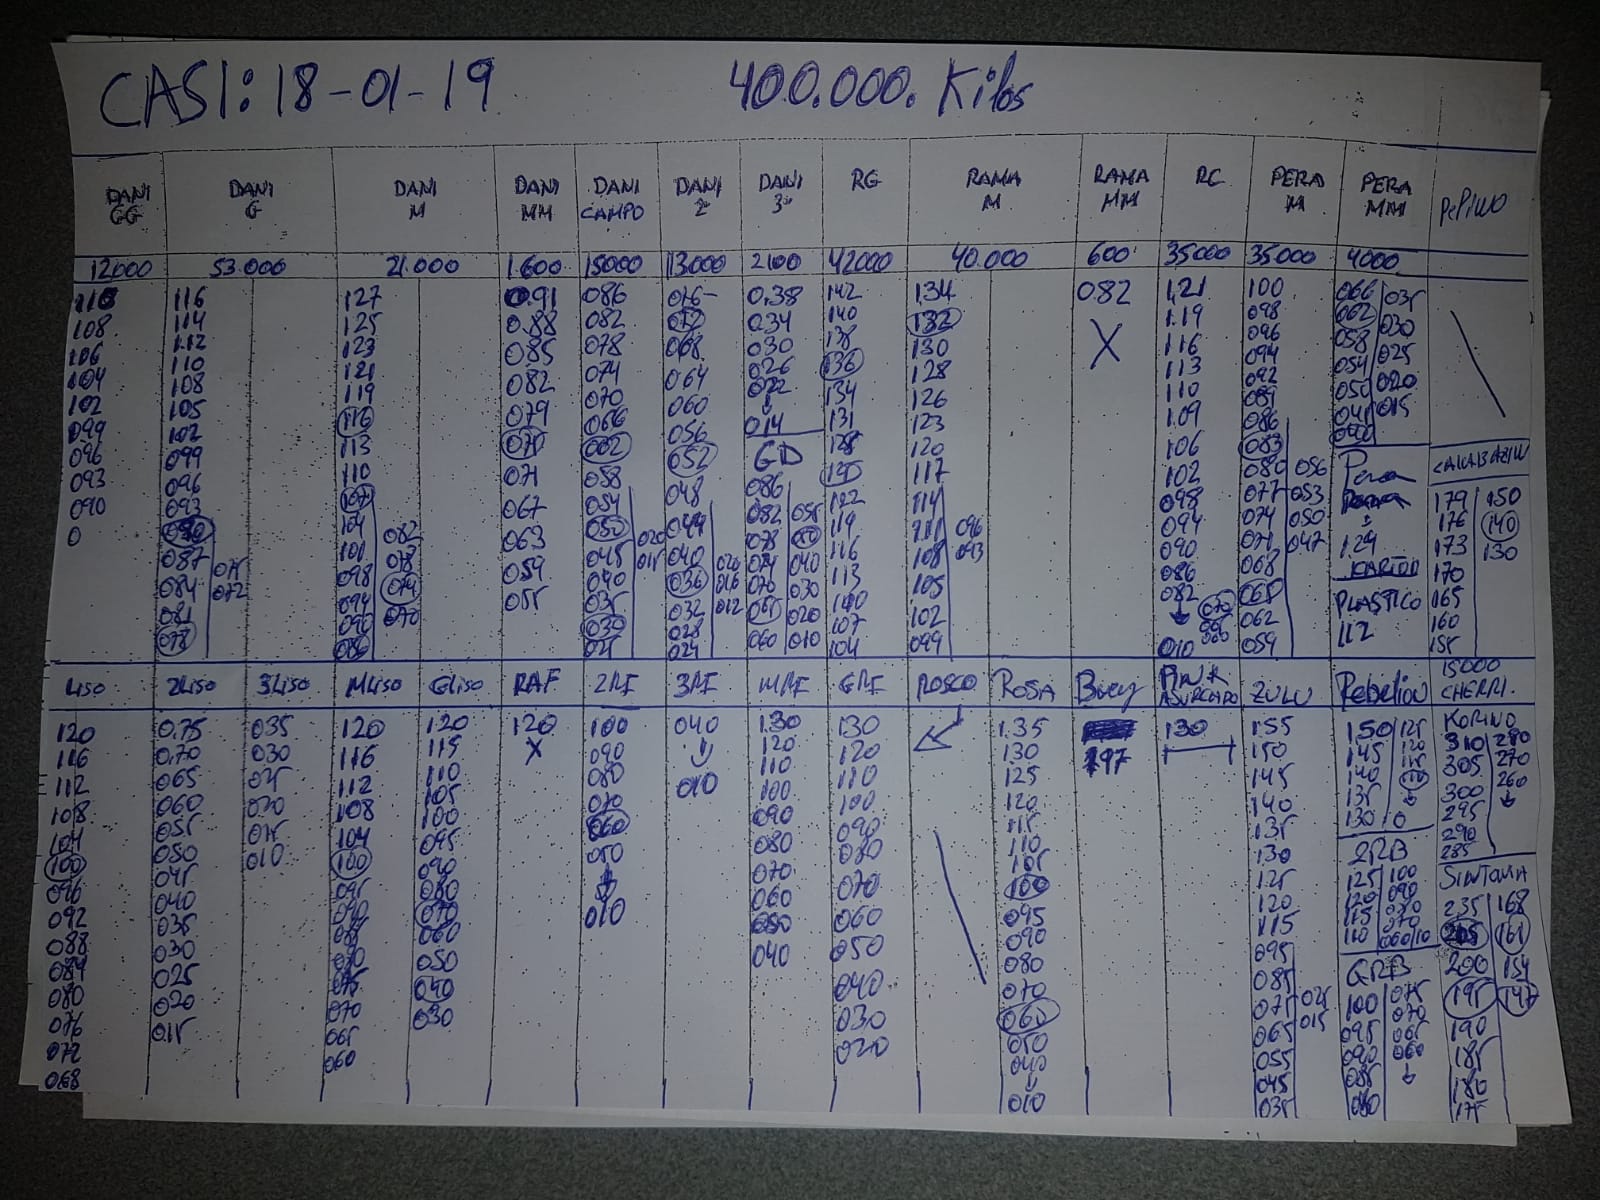 CASI: 18-01-19 400.000. Kilos
DANI GG DANI G DANI M DANI MM DANI CAMPO DANI 2ª DANI 3ª RG RAMA M RAMA MM RC PERA M PERA MM PEPINO
12000 53.000 21.000 1.600 15000 13000 2100 42000 40.000 600 35000 35.000 4000
110 116 127 0.91 086 076 0.38 142 134 082 1.21 100 066 035
108 114 125 0.88 082 072 034 140 132 X 1.19 098 062 030
106 112 123 085 078 068 030 138 130 116 096 058 025
104 110 121 082 074 064 026 136 128 113 094 054 020
102 108 119 079 070 060 022 134 126 110 092 050 015
099 105 116 075 066 056 ↓ 131 123 109 089
096 102 113 071 062 052 014 128 120 106 086
093 099 110 067 058 048 GD 125 117 102 083 Pera CALABACIN
090 096 107 063 054 044 086 122 114 098 080 056 179 150
0 093 104 082 059 050 020 040 020 082 055 119 111 096 094 077 053 129 176 140
090 101 078 055 045 015 036 016 078 050 116 108 093 090 074 050 KARTON 173 130
087 075 098 074 040 032 012 074 040 113 105 086 071 047 PLASTICO 170
084 072 094 070 035 028 070 030 110 102 082 068 112 165
081 090 030 024 065 020 107 099 ↓ 070 065 160
078 086 025 060 010 104 010 060 062 155
059
LISO 2LISO 3LISO MLISO GLISO RAF 2RF 3RF MRF GRF ROSCO ROSA Buey PINK ASURCADO ZULU Rebelion 15000 CHERRI.
120 0.75 035 120 120 120 100 040 1.30 130 1.35 197 130 1.55 150 125 KORINO
116 0.70 030 116 115 X 090 ↓ 120 120 130 150 145 120 310 280
112 065 025 112 110 080 010 110 110 125 145 140 115 305 270
108 060 020 108 105 070 100 100 120 140 135 110 300 260
104 055 015 104 100 060 090 090 115 135 130 0 295 ↓
100 050 010 100 095 050 080 080 110 130 2RB 290
096 045 095 090 ↓ 070 070 105 125 125 100 285
092 040 090 080 010 060 060 100 120 120 090 SINTONIA
088 035 085 070 050 050 095 115 115 080 235 168
084 030 080 060 040 040 090 095 110 070 205 161
080 025 075 050 030 080 085 060 10 200 154
076 020 070 040 020 070 075 025 GRB 195 147
072 015 065 030 060 065 015 100 075 190
068 060 050 055 095 070 185
040 045 090 065 180
↓ 035 085 060 175
010 080 ↓